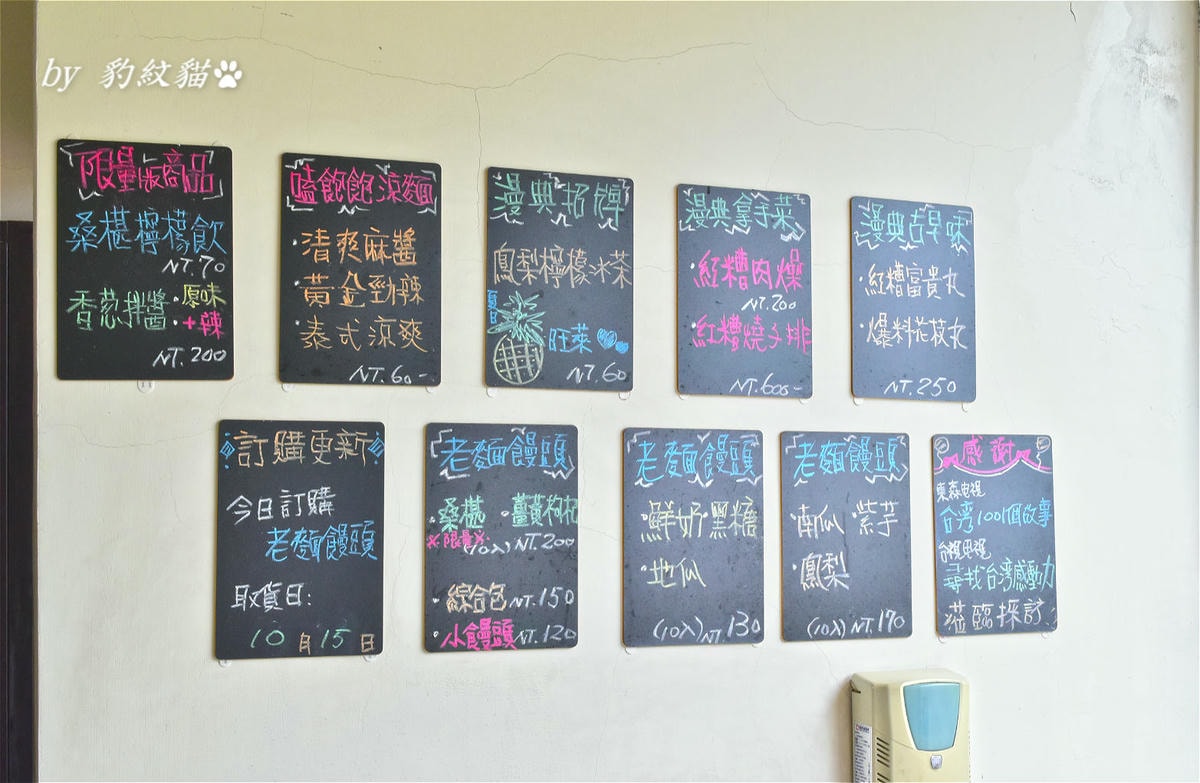 by 豹紋貓
限量版商品
桑椹檸檬飲
NT.70
香蔥拌醬 ·原味
·+辣
NT.200
嗑飽飽涼麵
·清爽麻醬
·黃金勁辣
·泰式涼爽
NT.60-
漫典招牌
鳳梨檸檬冰茶
夏日
旺萊
NT.60
漫典拿手菜
·紅糟肉燥
NT.200
·紅糟燒子排
NT.600-
漫典古早味
·紅糟富貴丸
·爆料花枝丸
NT.250
訂購更新
今日訂購
老麵饅頭
取貨日:
10月15日
老麵饅頭
·桑椹 ·薑黃枸杞
※限量※ (10入) NT.200
·綜合包 NT.150
·小饅頭 NT.120
老麵饅頭
·鮮奶·黑糖
·地瓜
(10入) NT.130
老麵饅頭
·南瓜 ·紫芋
·鳳梨
(10入) NT.170
感謝
東森电視
台湾1001個故事
台視电視
尋找台湾感動力
蒞臨採訪